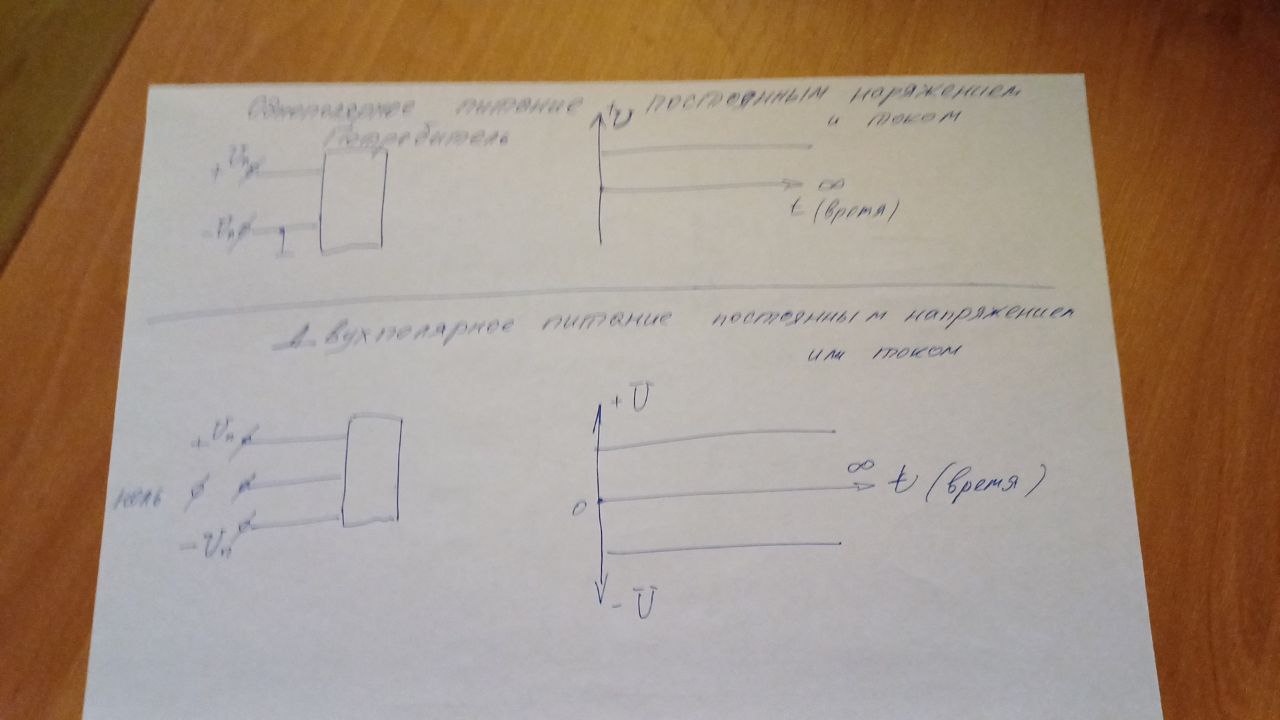 Однополярное питание постоянным наряжением
и током
Потребитель
+U
+Uп
-Uп
∞
t (время)
Двухполярное питание постоянным напряжением
или током
+U
+Uп
ноль ∅
-Uп
∞
t (время)
0
-U